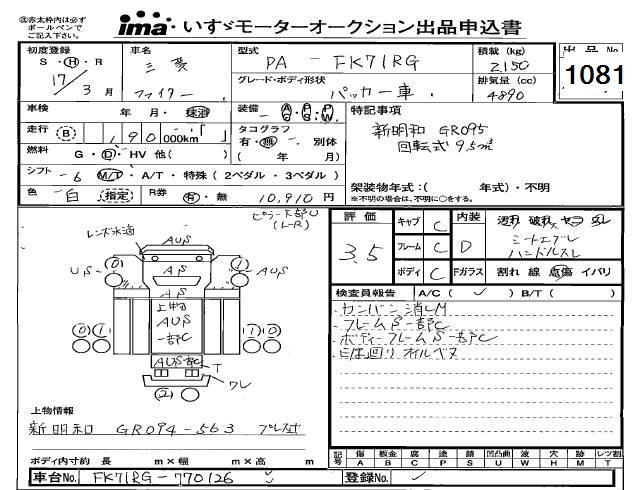 ㊟赤太枠内は必ず
ボールペンで
ご記入下さい。
ima いすゞモーターオークション出品申込書
初度登録 車名 型式 積載 (kg) 出品No
S・H・R 三菱 PA - FK71RG 2,150 1081
17/3月 ファイター グレード・ボディ形状 パッカー車 排気量 (cc) 4890
車検 年 月・抹消 装備 A/G・P/S・P/W 特記事項
走行 B 190 000km タコグラフ 新明和 GR095
有・無・別体 回転式 9.5㎥
燃料 G・D・HV 他( ) ( 年 月)
シフト 6 M/T・A/T・特殊 (2ペダル・3ペダル)
架装物年式:( 年式)・不明
色 白 指定 R券 有・無 10,910円 ※不明の場合は、不明に○をする。
ピラー下部U
(L-R)
レンズ水滴
AUS
US
AUS
AS
AS
上物
AUS
一部C
AUS
一部C
T
ワレ
0
1
0
1
1
0
2
0
評価 3.5
キャブ C 内装 D 汚れ 破れ ヤニ スレ
フレーム C シートコゲ
ハンドルスレ
ボディ C Fガラス 割れ 線 点傷 イバリ
検査員報告 A/C(✓) B/T( )
・カンバン消しM
・フレームS一部C
・ボディーフレームS一部C
・E下廻りオイルベタ
上物情報
新明和 GR094-563 プレス式
ボディ内寸約 長 m×幅 m×高 m
記号 傷 A 板金 B 腐 C 塗 P 錆 S 凹凸曲 U 波 W 穴 H 跡 M レンズ割 T
車台No. FK71RG-770126 登録No. ✓